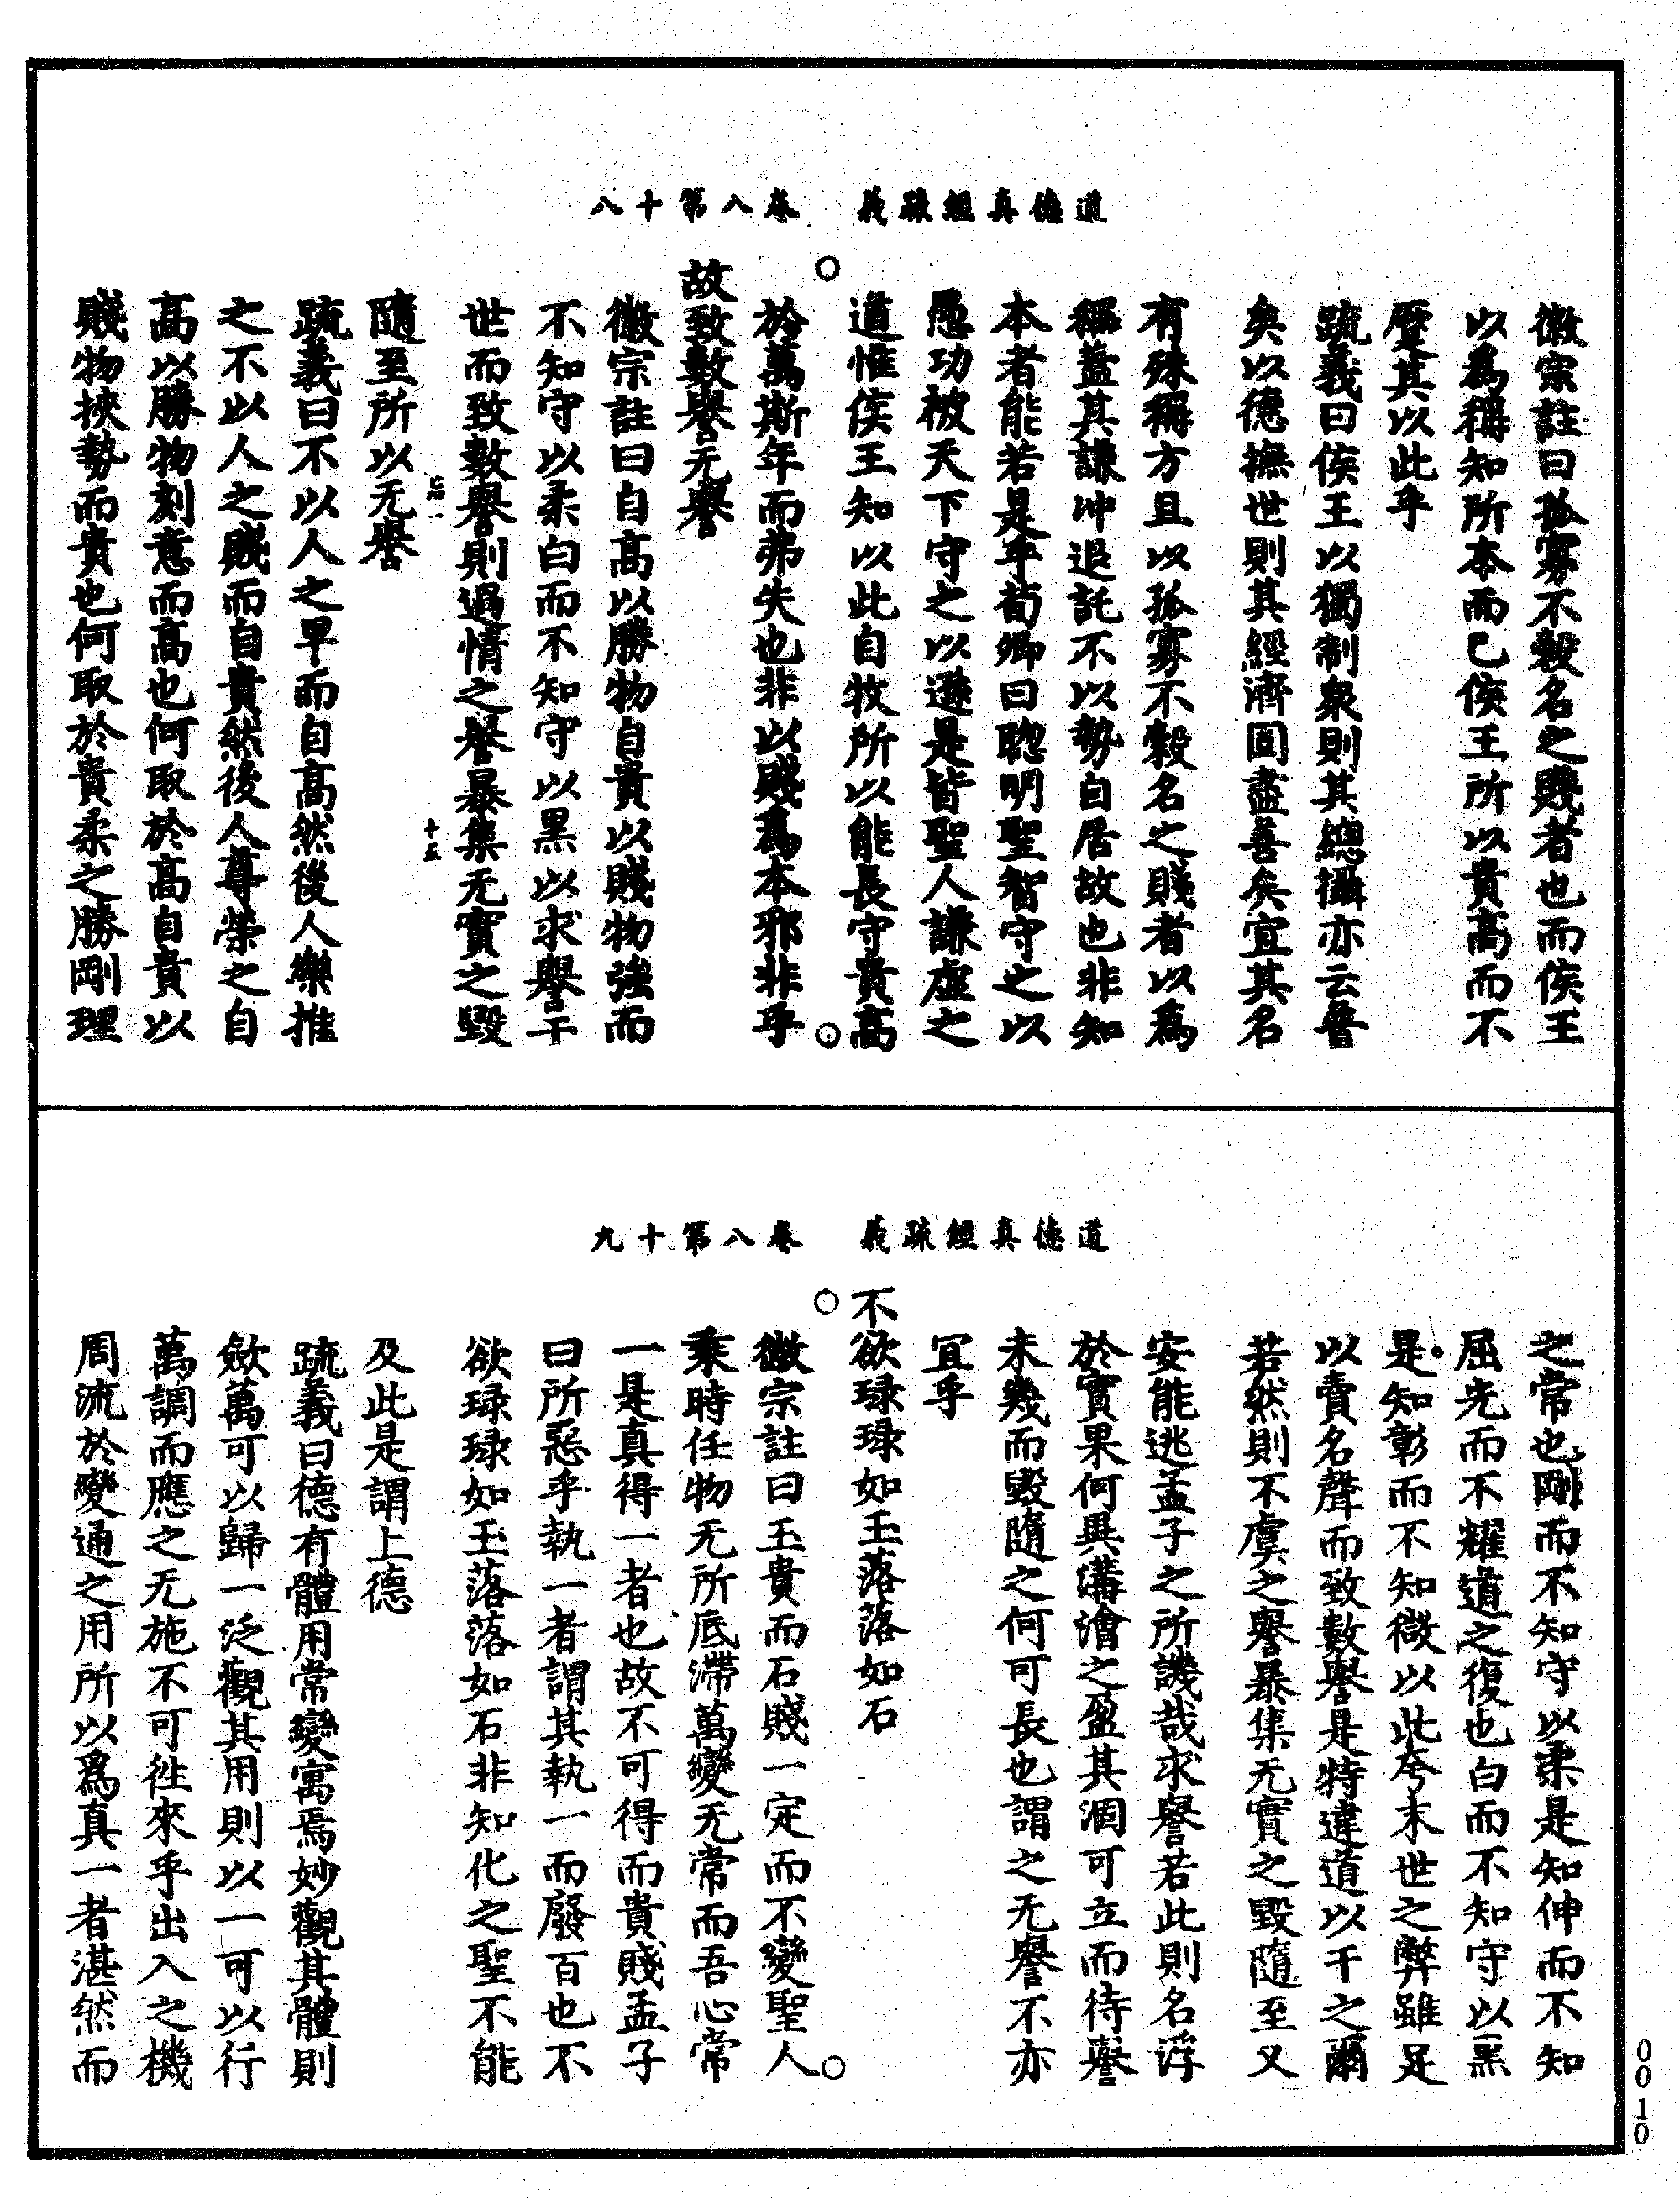 道德真經疏義　卷八第十八
徽宗註曰孤寡不穀名之賤者也而侯王
以為稱知所本而已侯王所以貴高而不
蹷其以此乎
疏義曰侯王以獨制衆則其總攝亦云魯
矣以德撫世則其經濟固盡善矣宜其名
有殊稱方且以孤寡不穀名之賤者以為
稱蓋其謙冲退託不以勢自居故也非知
本者能若是乎荀卿曰聰明聖智守之以
愚功被天下守之以遜是皆聖人謙虛之
道惟侯王知以此自牧所以能長守貴高
於萬斯年而弗失也非以賤為本邪非乎
故致數譽无譽
徽宗註曰自高以勝物自貴以賤物強而
不知守以柔白而不知守以黑以求譽于
世而致數譽則過情之譽暴集无實之毀
十五
隨至所以无譽
疏義曰不以人之早而自高然後人樂推
之不以人之賤而自貴然後人尊榮之自
高以勝物刻意而高也何取於高自貴以
賤物挾勢而貴也何取於貴柔之勝剛理
道德真經疏義　卷八第十九
之常也剛而不知守以柔是知伸而不知
屈光而不耀道之復也白而不知守以黑
是知彰而不知微以此夸末世之弊雖足
以賣名聲而致數譽是特違道以干之爾
若然則不虞之譽暴集无實之毀隨至又
安能逃孟子之所譏哉求譽若此則名浮
於實果何異溝澮之盈其涸可立而待譽
未幾而毀隨之何可長也謂之无譽不亦
宜乎
不欲琭琭如玉落落如石
徽宗註曰玉貴而石賤一定而不變聖人
乘時任物无所底滯萬變无常而吾心常
一是真得一者也故不可得而貴賤孟子
曰所惡乎執一者謂其執一而廢百也不
欲琭琭如玉落落如石非知化之聖不能
及此是謂上德
疏義曰德有體用常變寓焉妙觀其體則
斂萬可以歸一泛觀其用則以一可以行
萬調而應之无施不可徃來乎出入之機
周流於變通之用所以為真一者湛然而
0010